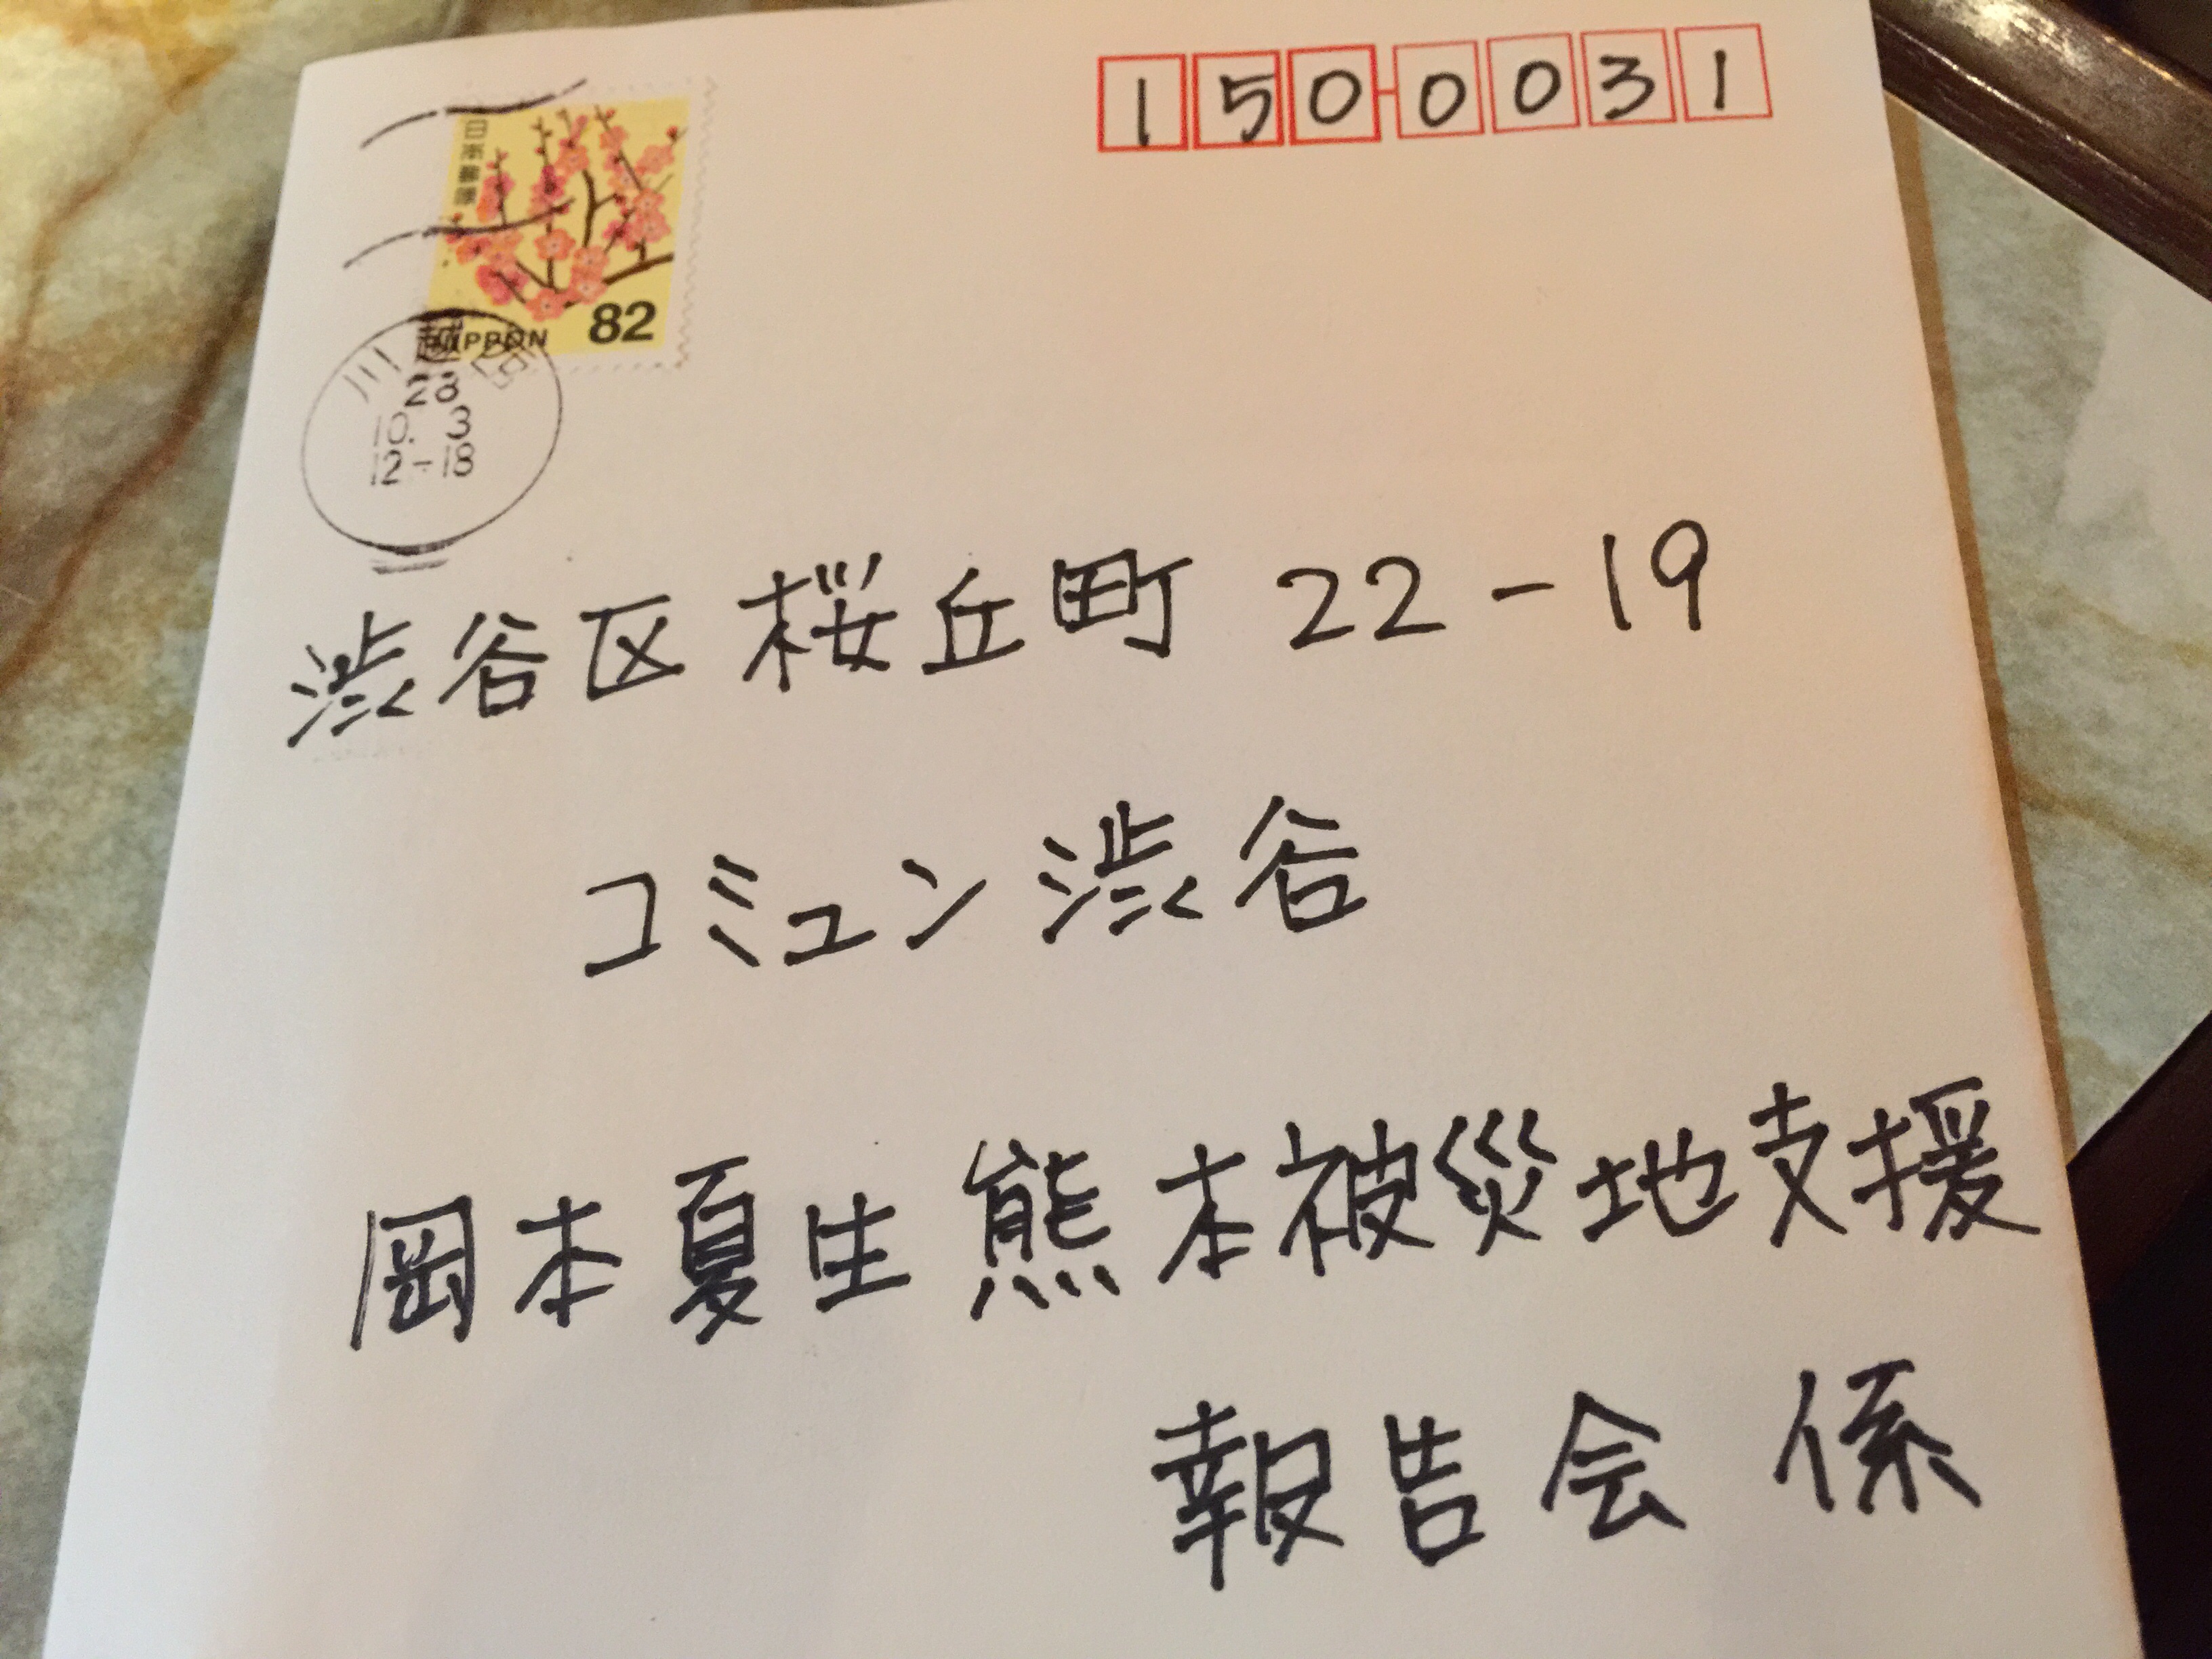 150-0031
日本郵便
NIPPON 82
川越西
28
10. 3
12-18
渋谷区桜丘町 22-19
コミュン渋谷
岡本夏生熊本被災地支援
報告会 係